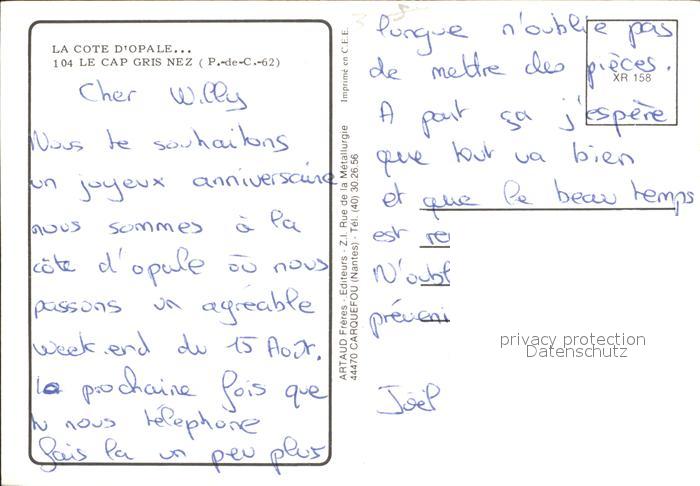 LA COTE D'OPALE...
104 LE CAP GRIS NEZ ( P.-de-C.-62)
Cher Willy
Nous te souhaitons
un joyeux anniversaire
nous sommes à la
côte d'opale où nous
passons un agréable
week.end du 15 Août.
la prochaine fois que
tu nous téléphone
fais la un peu plus
Imprimé en C.E.E.
ARTAUD Frères - Editeurs - Z.I. Rue de la Métallurgie
44470 CARQUEFOU (Nantes) - Tél. (40) 30.26.56
longue n'oublie pas
de mettre des pièces.
XR 158
A part ça j'espère
que tout va bien
et que le beau temps
est
Joël
privacy protection
Datenschutz